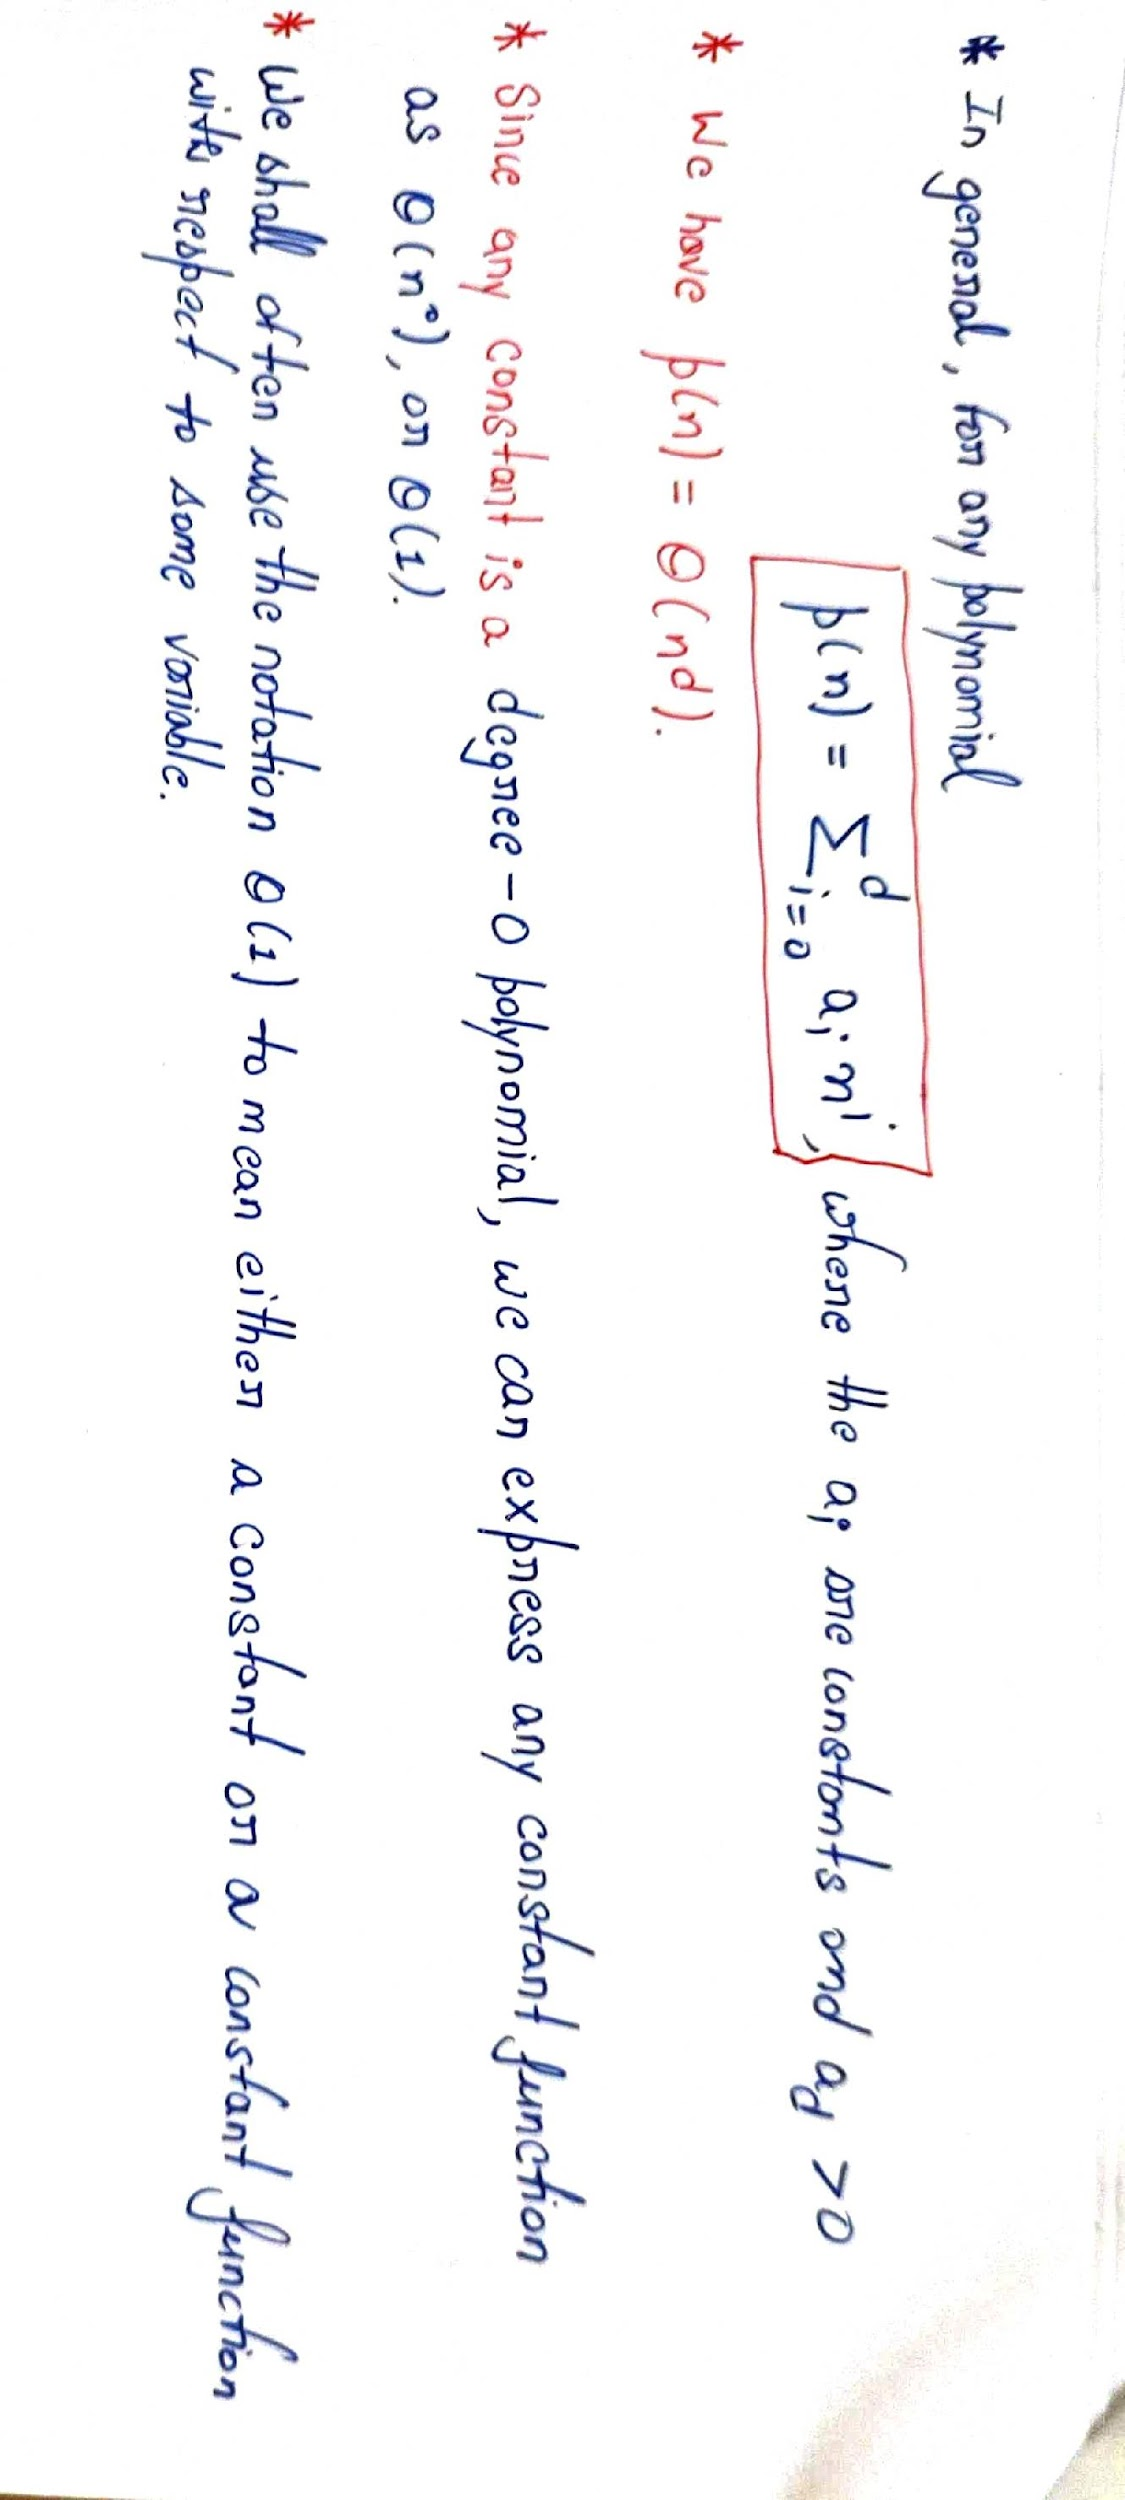 * In general, for any polynomial
p(n) = Σᵢ₌₀ᵈ aᵢ nⁱ, where the aᵢ are constants and a_d > 0
* We have p(n) = Θ(nd).
* Since any constant is a degree-0 polynomial, we can express any constant function
as Θ(n°), or Θ(1).
* We shall often use the notation Θ(1) to mean either a constant or a constant function
with respect to some variable.